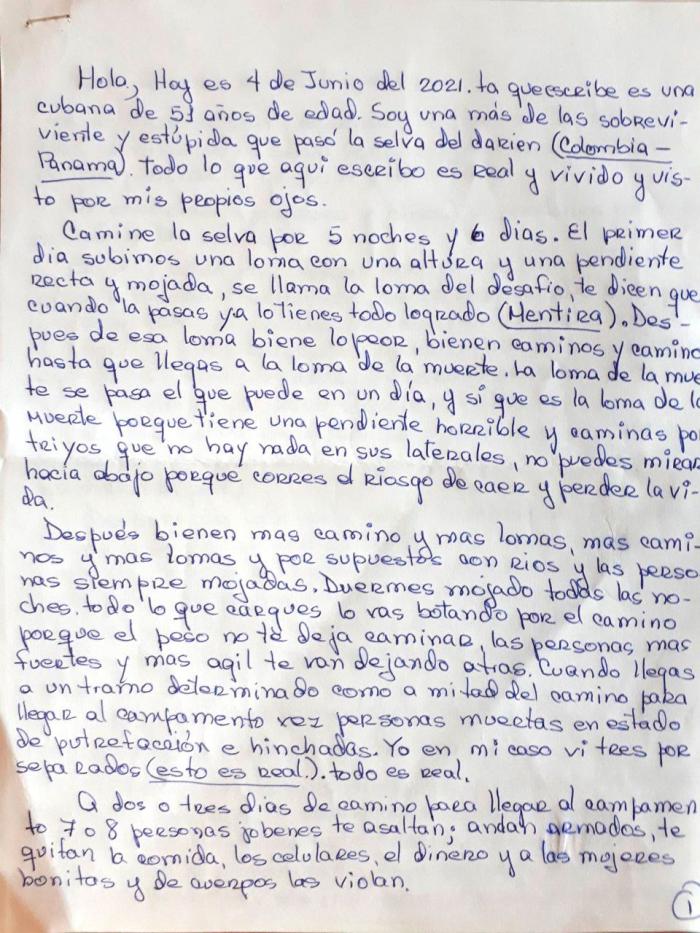 Hola, Hoy es 4 de Junio del 2021. La que escribe es una
cubana de 53 años de edad. Soy una más de las sobrevi-
viente y estúpida que pasó la selva del darien (Colombia -
Panama). todo lo que aquí escribo es Real y vivido y vis-
to por mis propios ojos.
Camine la selva por 5 noches y 6 dias. El primer
dia subimos una loma con una altura y una pendiente
recta y mojada, se llama la loma del desafio, te dicen que
cuando la pasas ya lo tienes todo logrado (Mentira). Des-
pues de esa loma biene lo peor, bienen caminos y camino
hasta que llegas a la loma de la muerte. La loma de la mue
te se pasa el que puede en un día, y sí que es la loma de la
muerte porque tiene una pendiente horrible y caminas po
triyos que no hay nada en sus laterales, no puedes mirar
hacia abajo porque corres el riosgo de caer y perder la vi-
da.
Después bienen mas camino y mas lomas, mas cami-
nos y mas lomas y por supuestos con rios y las perso
nas siempre mojadas. Duermes mojado todas las no-
ches. todo lo que cargues lo vas botando por el camino
porque el peso no te deja caminar, las personas mas
fuertes y mas agil te van dejando atras. Cuando llegas
a un tramo determinado como a mitad del camino para
llegar al campamento vez personas muertas en estado
de putrefacción e hinchadas. Yo en mi caso vi tres por
separados (esto es real.). todo es real.
A dos o tres dias de camino para llegar al campamen
to 7 o 8 personas jobenes te asaltan; andan armados, te
quitan la comida, los celulares, el dinero y a las mujeres
bonitas y de cuerpos las violan.
1